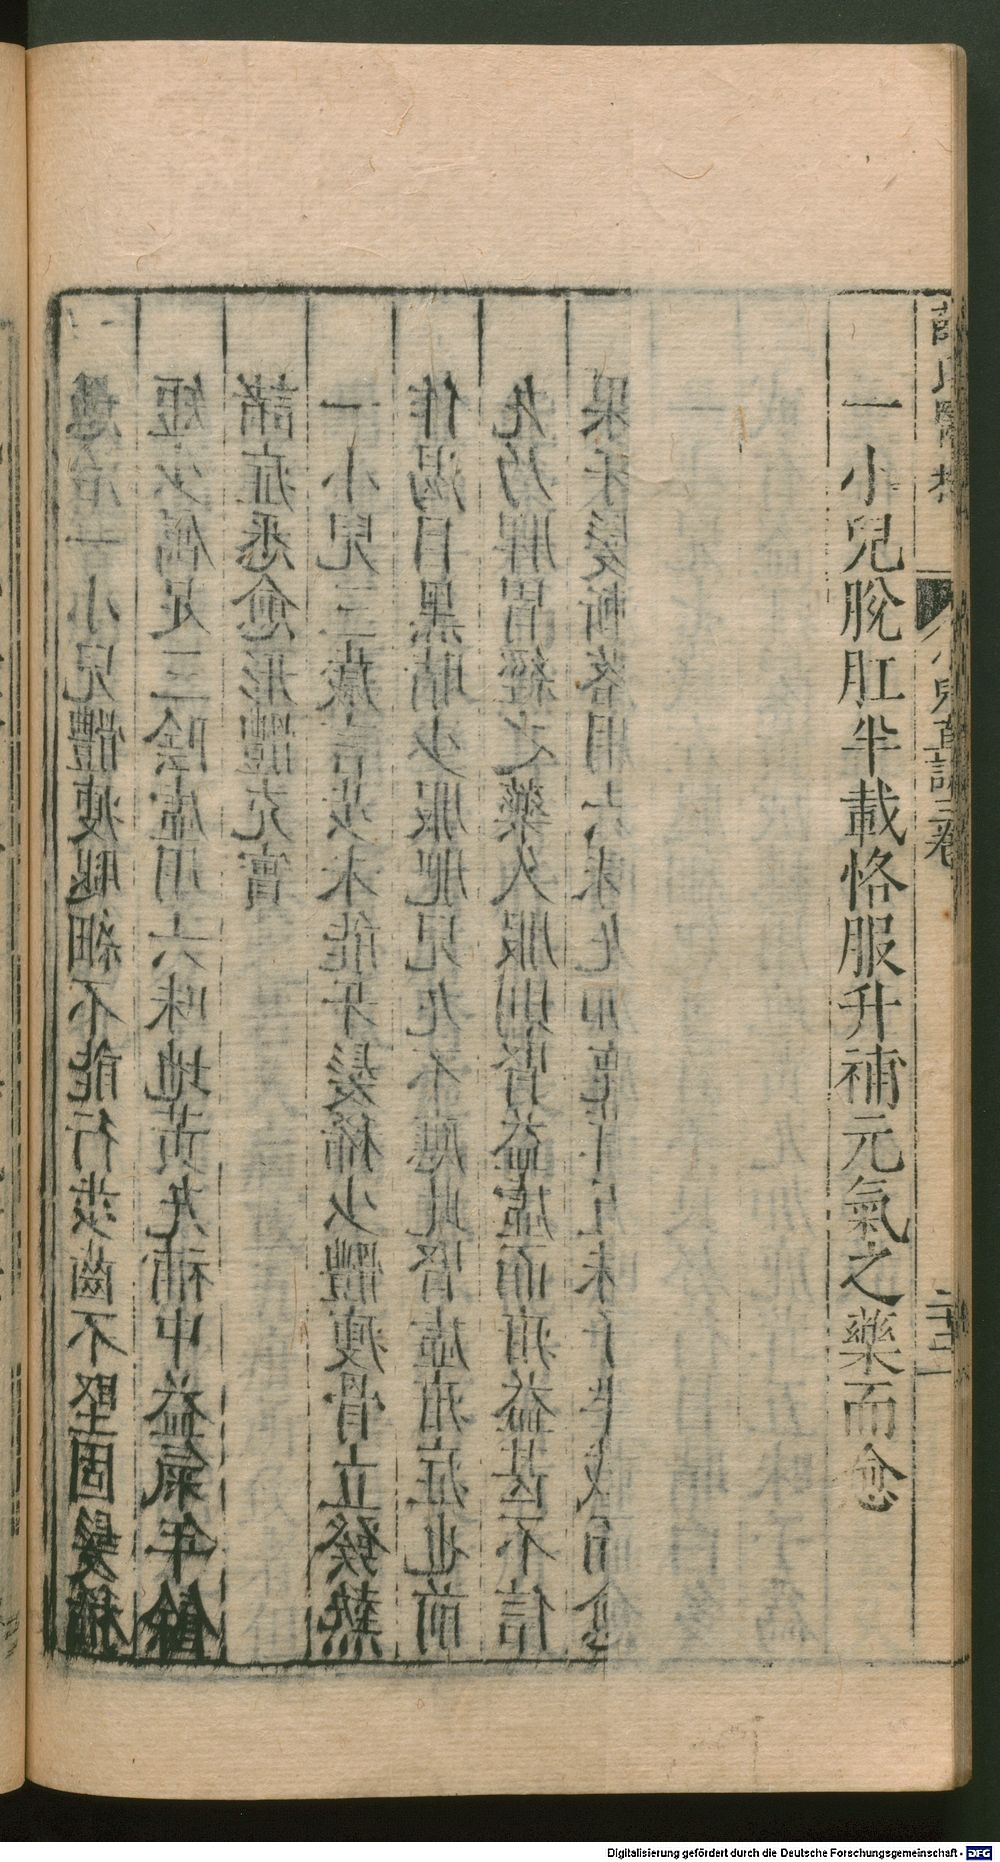 薛氏醫按 小兒直訣三卷 二十二
一小兒脫肛半載恪服升補元氣之藥而愈
愚治一小兒體瘦腿細不能行步齒不堅固髮稀
短少屬足三陰虛用六味地黃丸補中益氣年餘
諸症悉愈形體充實
一小兒三歲言步未能牙髮稀少體瘦骨立發熱
作渴目黑睛少服肥兒丸不應此腎虛疳症也前
丸乃脾胃經之藥久服則腎益虛而疳益甚不信
果牙髮漸落用六味丸加鹿茸五味子半載而愈
Digitalisierung gefördert durch die Deutsche Forschungsgemeinschaft - DFG